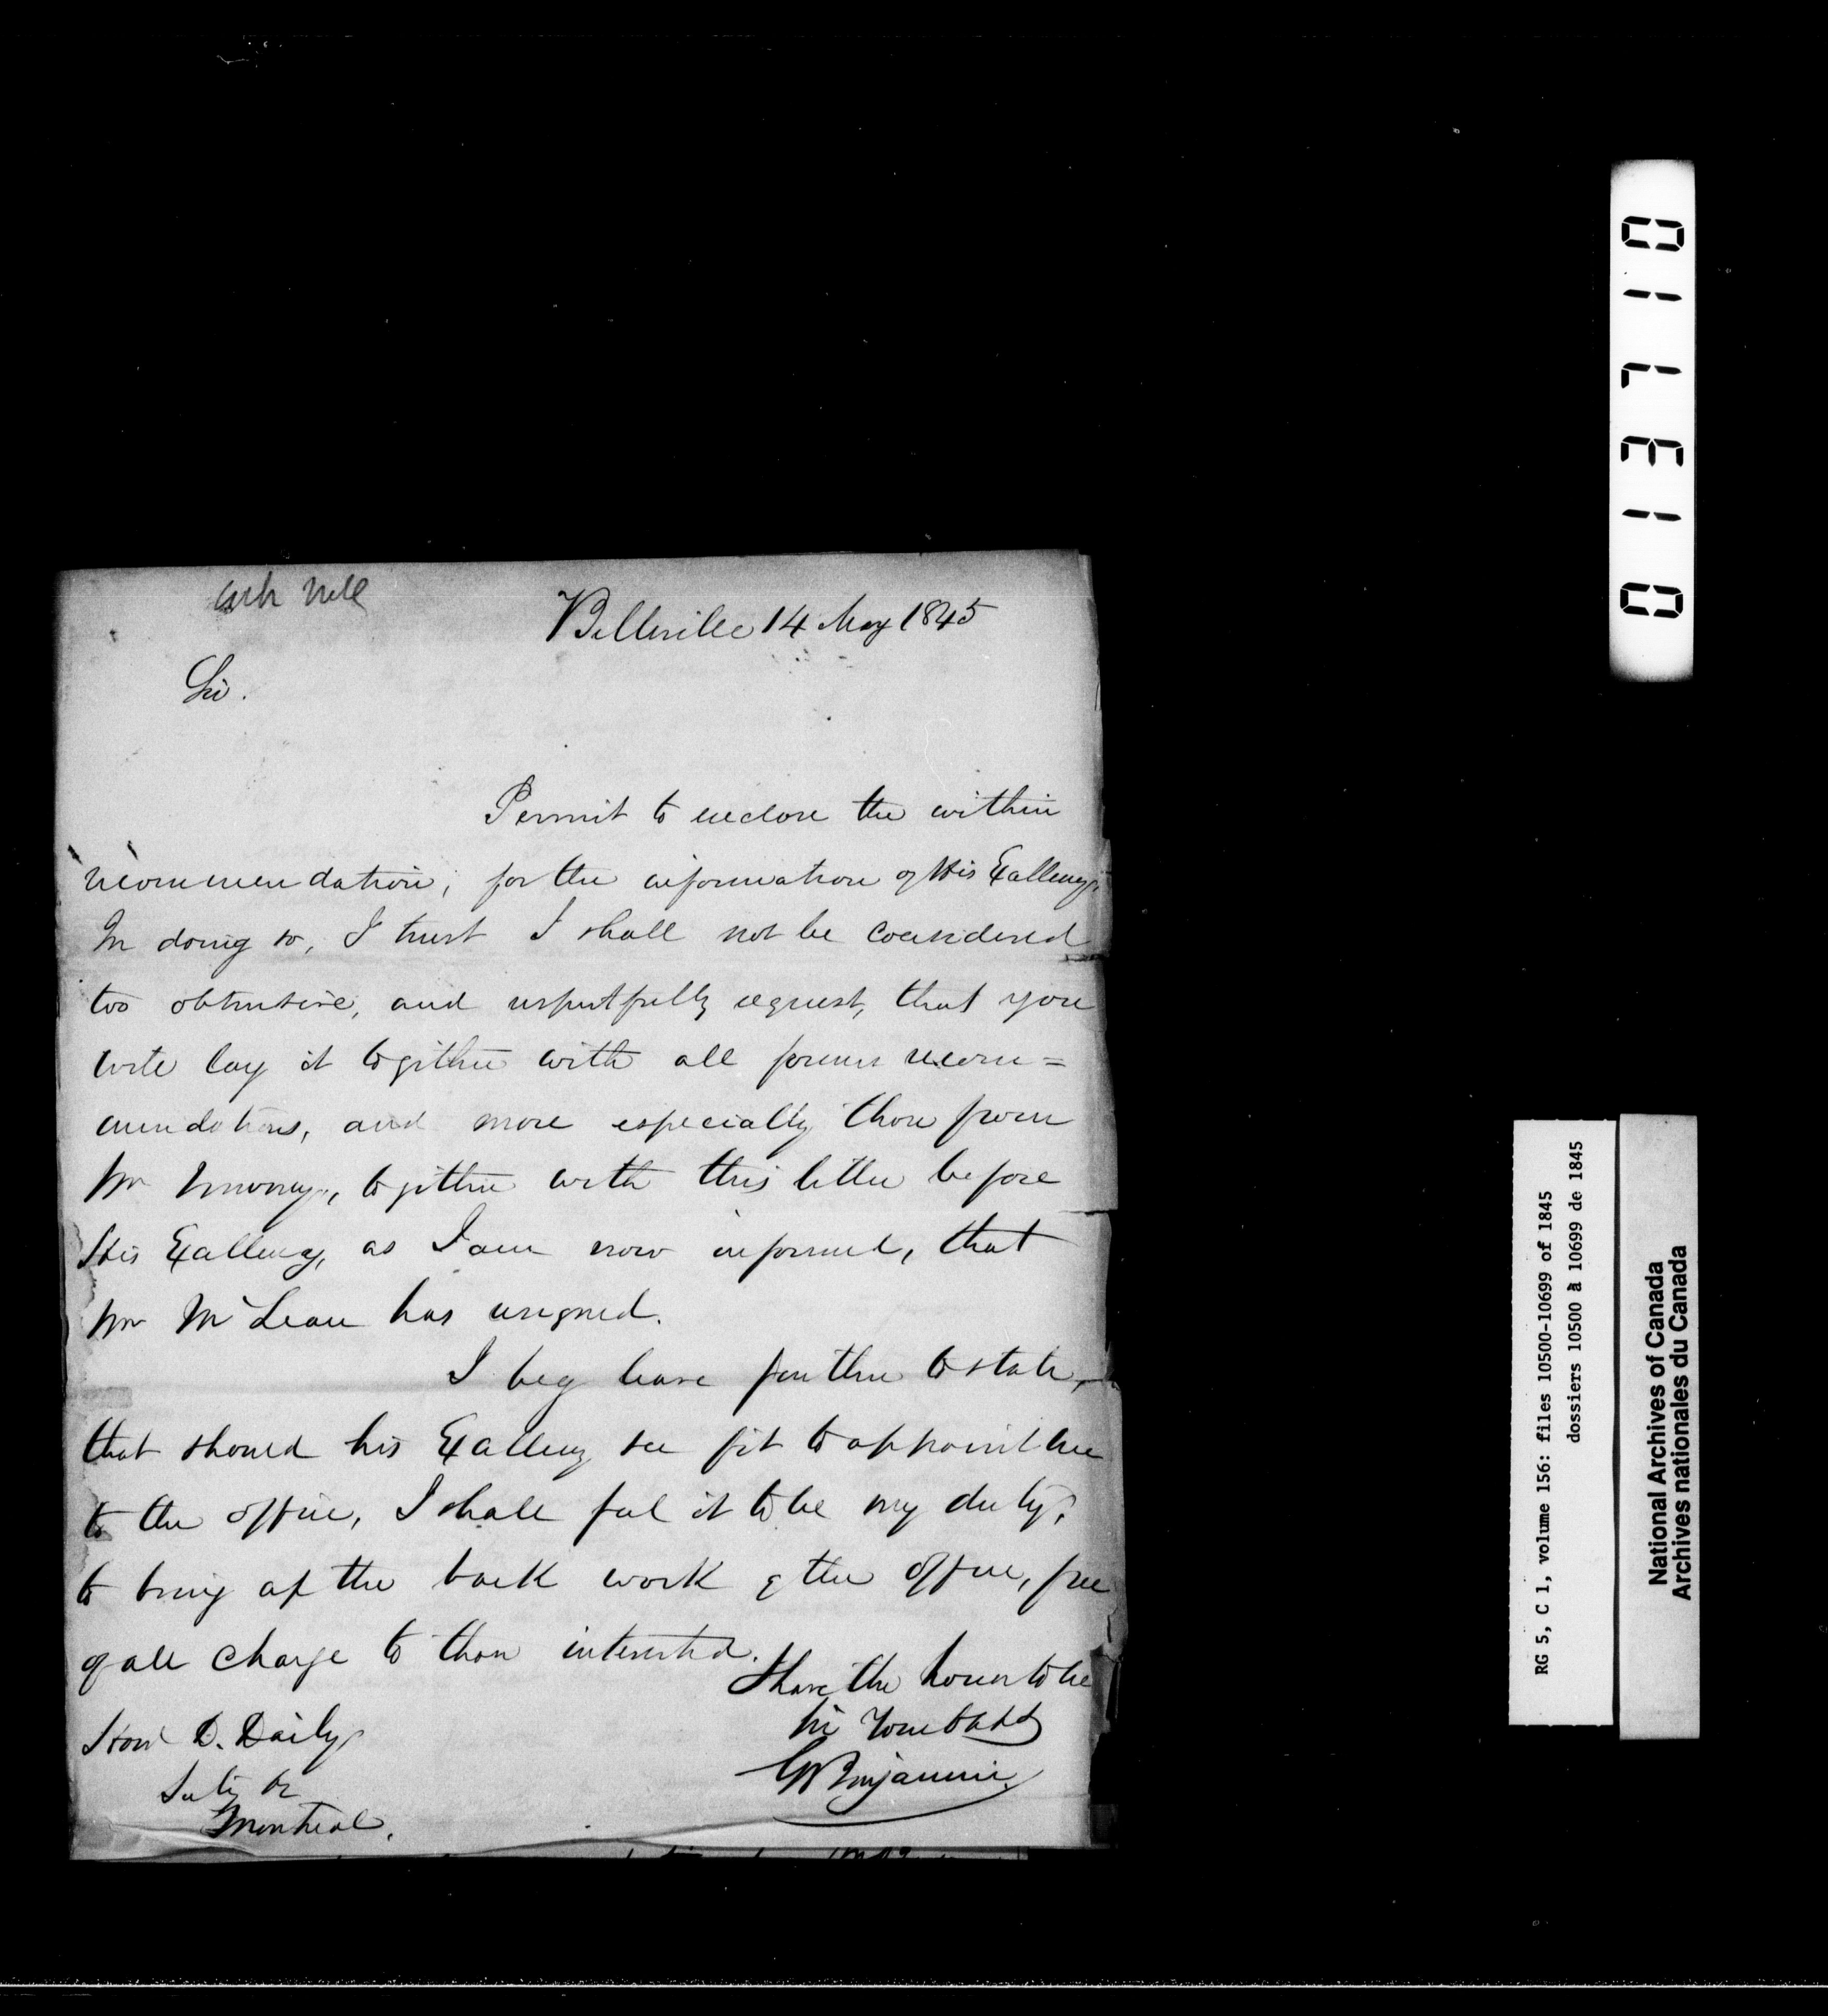 Belleville 14 May 1845
Sir.
Permit to enclose the within
recommendation, for the information of His Excellency.
In doing so, I trust I shall not be considered
too obtrusive, and respectfully request, that you
will lay it together with all former recom=
mendations, and more especially those from
Mr Murney, together with this letter before
His Excellency, as I am now informed, that
Mr McLean has resigned.
I beg leave further to state,
that should his Excellency see fit to appoint me
to the office, I shall feel it to be my duty,
to bring up the back work of the office, free
of all charge to those interested.
I have the honor to be
Sir Your
GBenjamin
Honl D. Daily
Montreal.
013710
RG 5, C 1, volume 156: files 10500-10699 of 1845
dossiers 10500 à 10699 de 1845
National Archives of Canada
Archives nationales du Canada